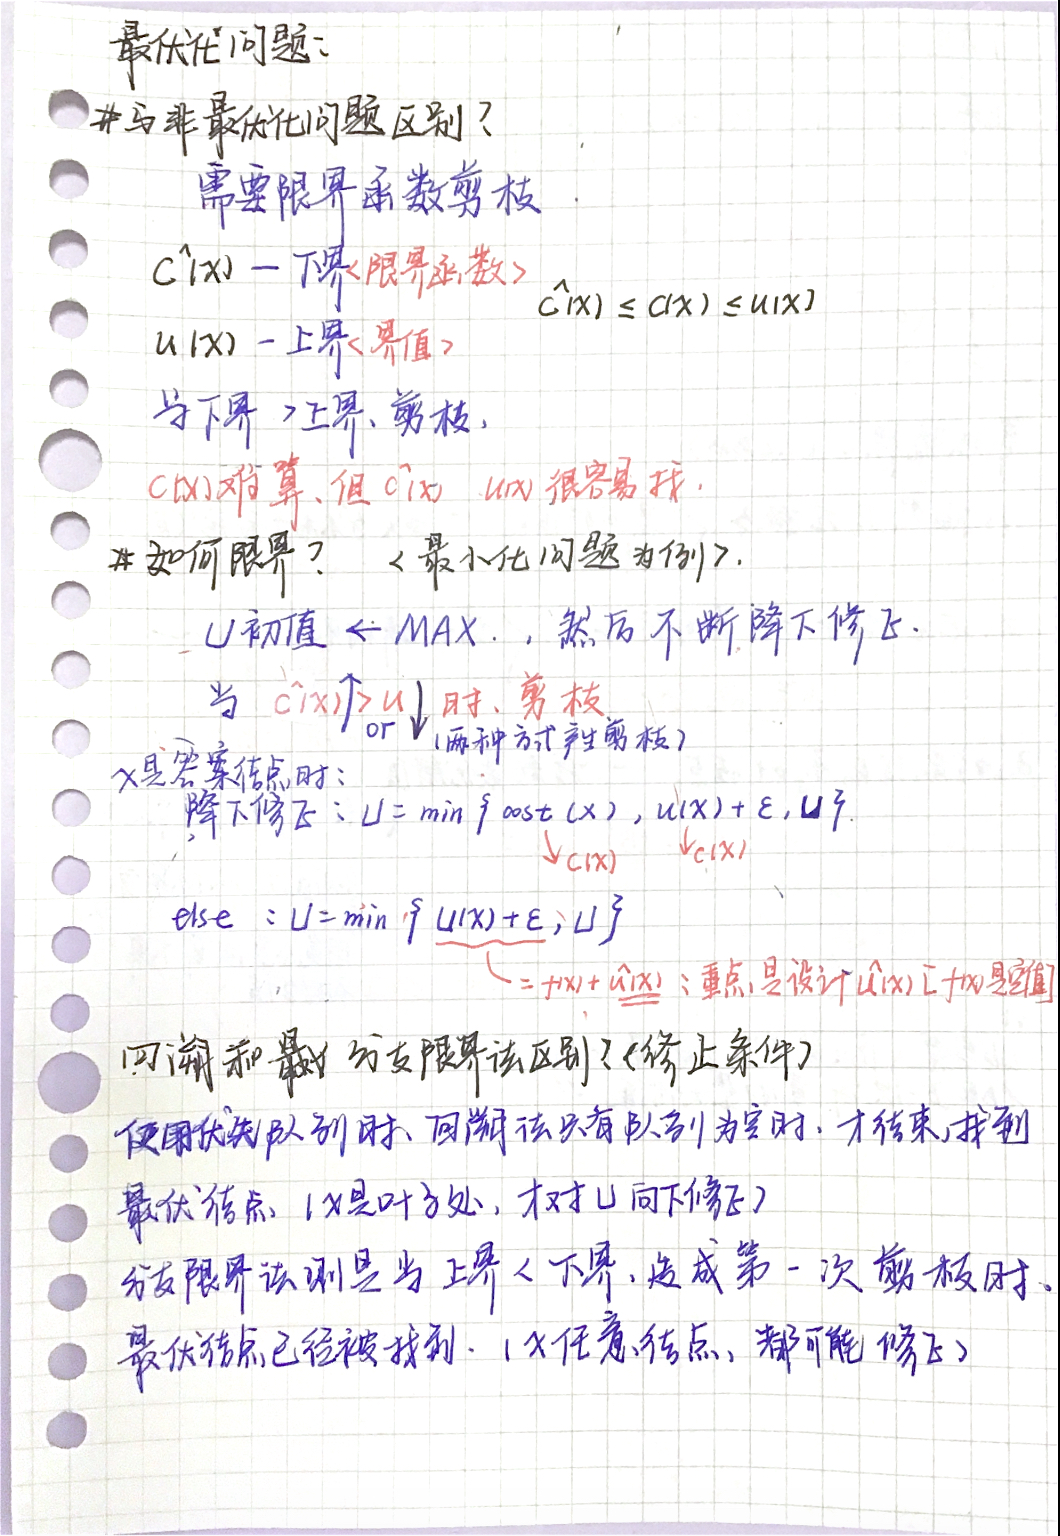 最优化问题:
#与非最优化问题区别?
需要限界函数剪枝
ĉ(X) — 下界<限界函数>
ĉ(X) ≤ C(X) ≤ U(X)
U(X) — 上界<界值>
当下界>上界、剪枝.
C(X)难算、但ĉ(X) U(X)很容易找.
#如何限界? <最小化问题为例>.
U初值 ← MAX . , 然后不断降下修正.
当 ĉ(X)↑>U↓时、剪枝
or (两种方式产生剪枝)
X是答案结点时:
降下修正: U = min { cost(X), U(X)+ε, U }.
↓C(X) ↓C(X)
else : U = min { U(X)+ε; U }
= f(X)+û(X) ; 重点是设计û(X) [f(X)是定值]
回溯和 分支限界法区别?(修正条件)
使用优先队列时、回溯法只有队列为空时、才结束,找到
最优结点、(X是叶子处, 才对U向下修正)
分支限界法则是当上界<下界、造成第一次剪枝时、
最优结点已经被找到. (X任意结点、都可能修正)